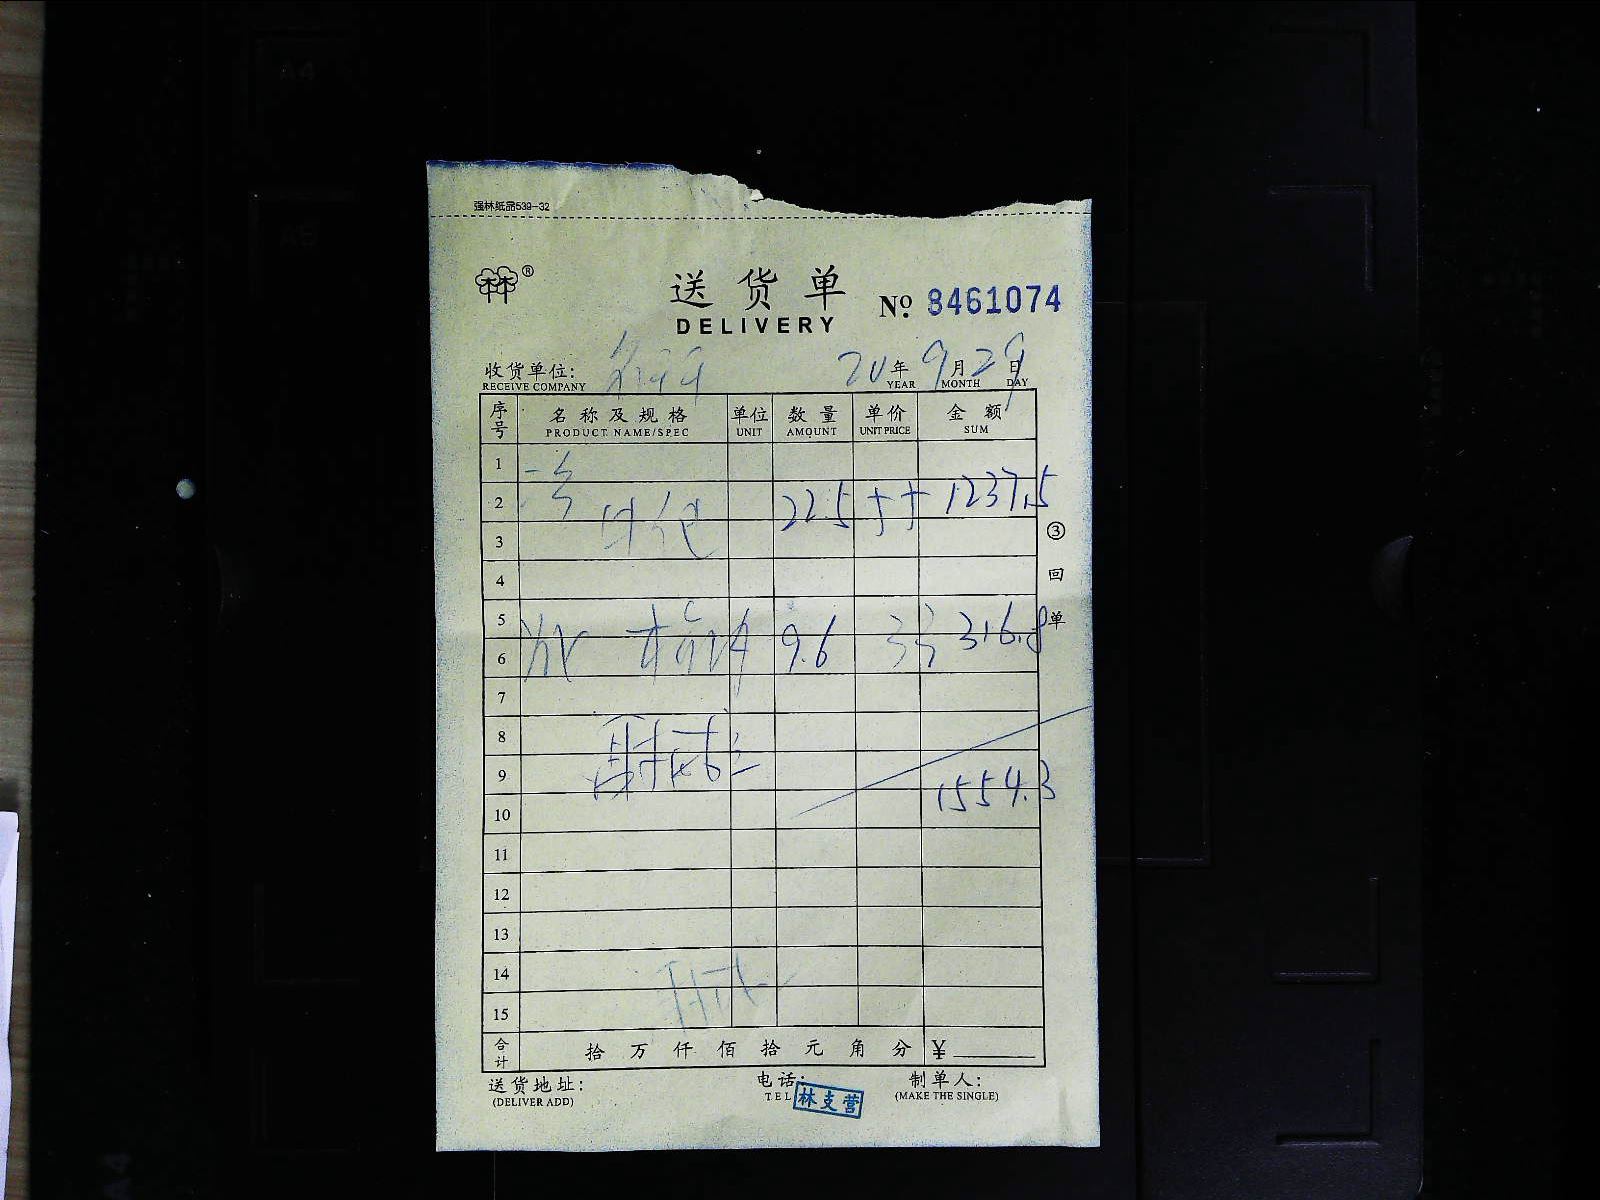 强林纸品539-32
®
送货单
DELIVERY
No. 8461074
收货单位: 20年9月29日
RECEIVE COMPANY YEAR MONTH DAY
序号 名称及规格 单位 数量 单价 金额
PRODUCT NAME/SPEC UNIT AMOUNT UNIT PRICE SUM
1
2 22.5 55 1237.5
3
4
5
6 9.6 33 316.8
7
8
9
1554.3
10
11
12
13
14
15
合计 拾 万 仟 佰 拾 元 角 分 ¥
③回单
送货地址: 电话: 制单人:
(DELIVER ADD) TEL (MAKE THE SINGLE)
林支营
A4
A5